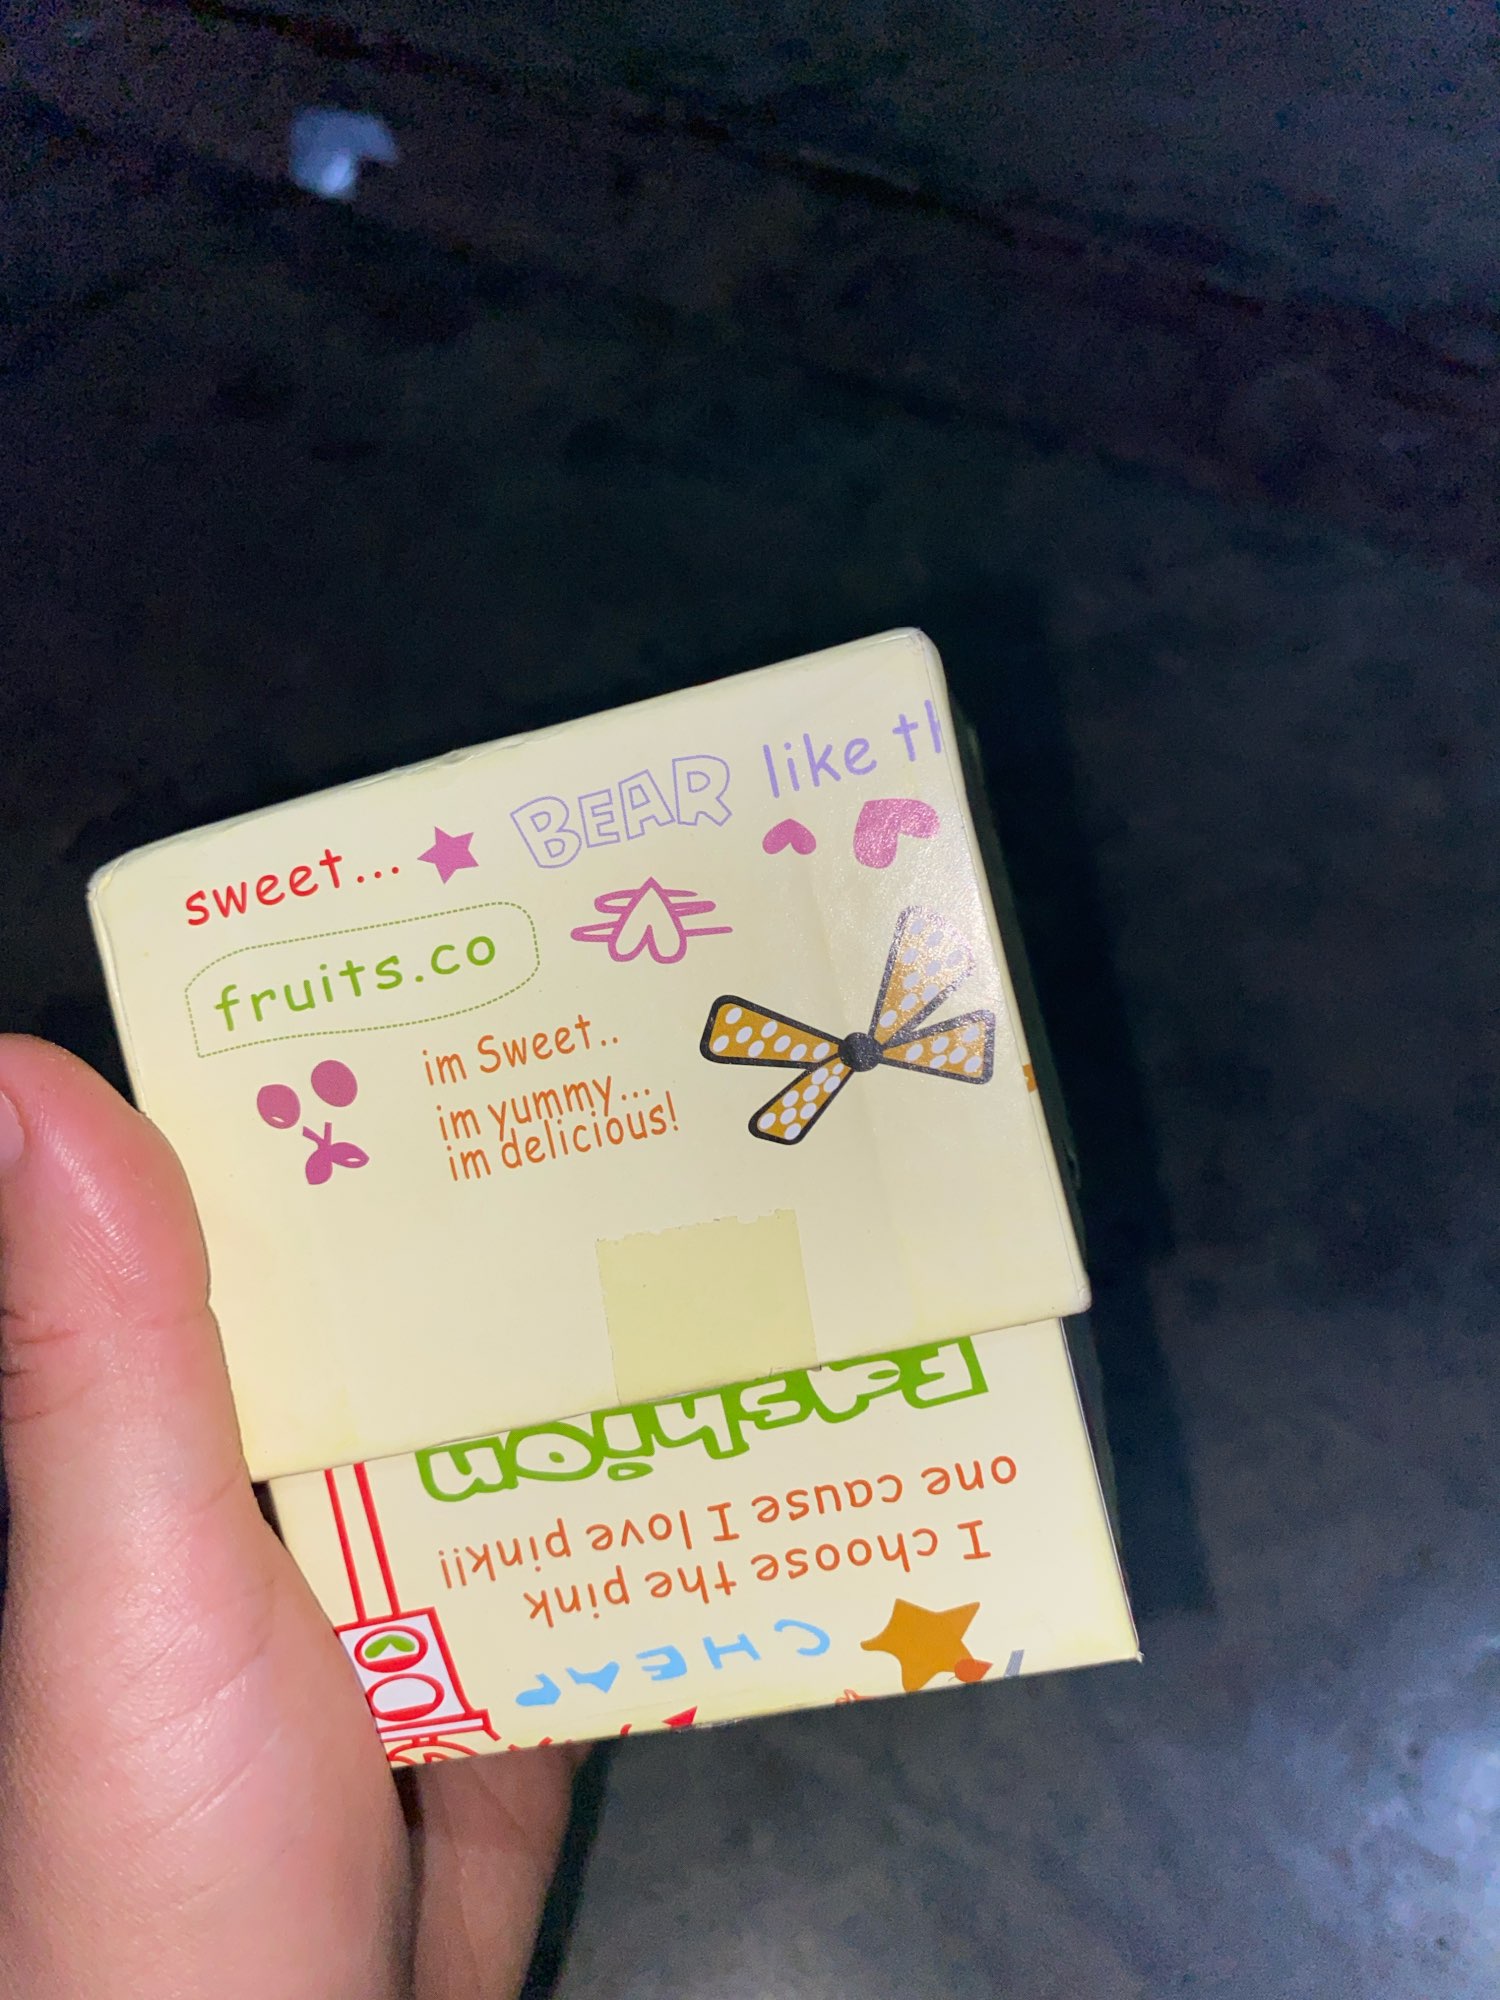 sweet... BEAR like th
fruits.co
im Sweet..
im yummy...
im delicious!
Fashion
one cause I love pink!!
I choose the pink
CHEAP